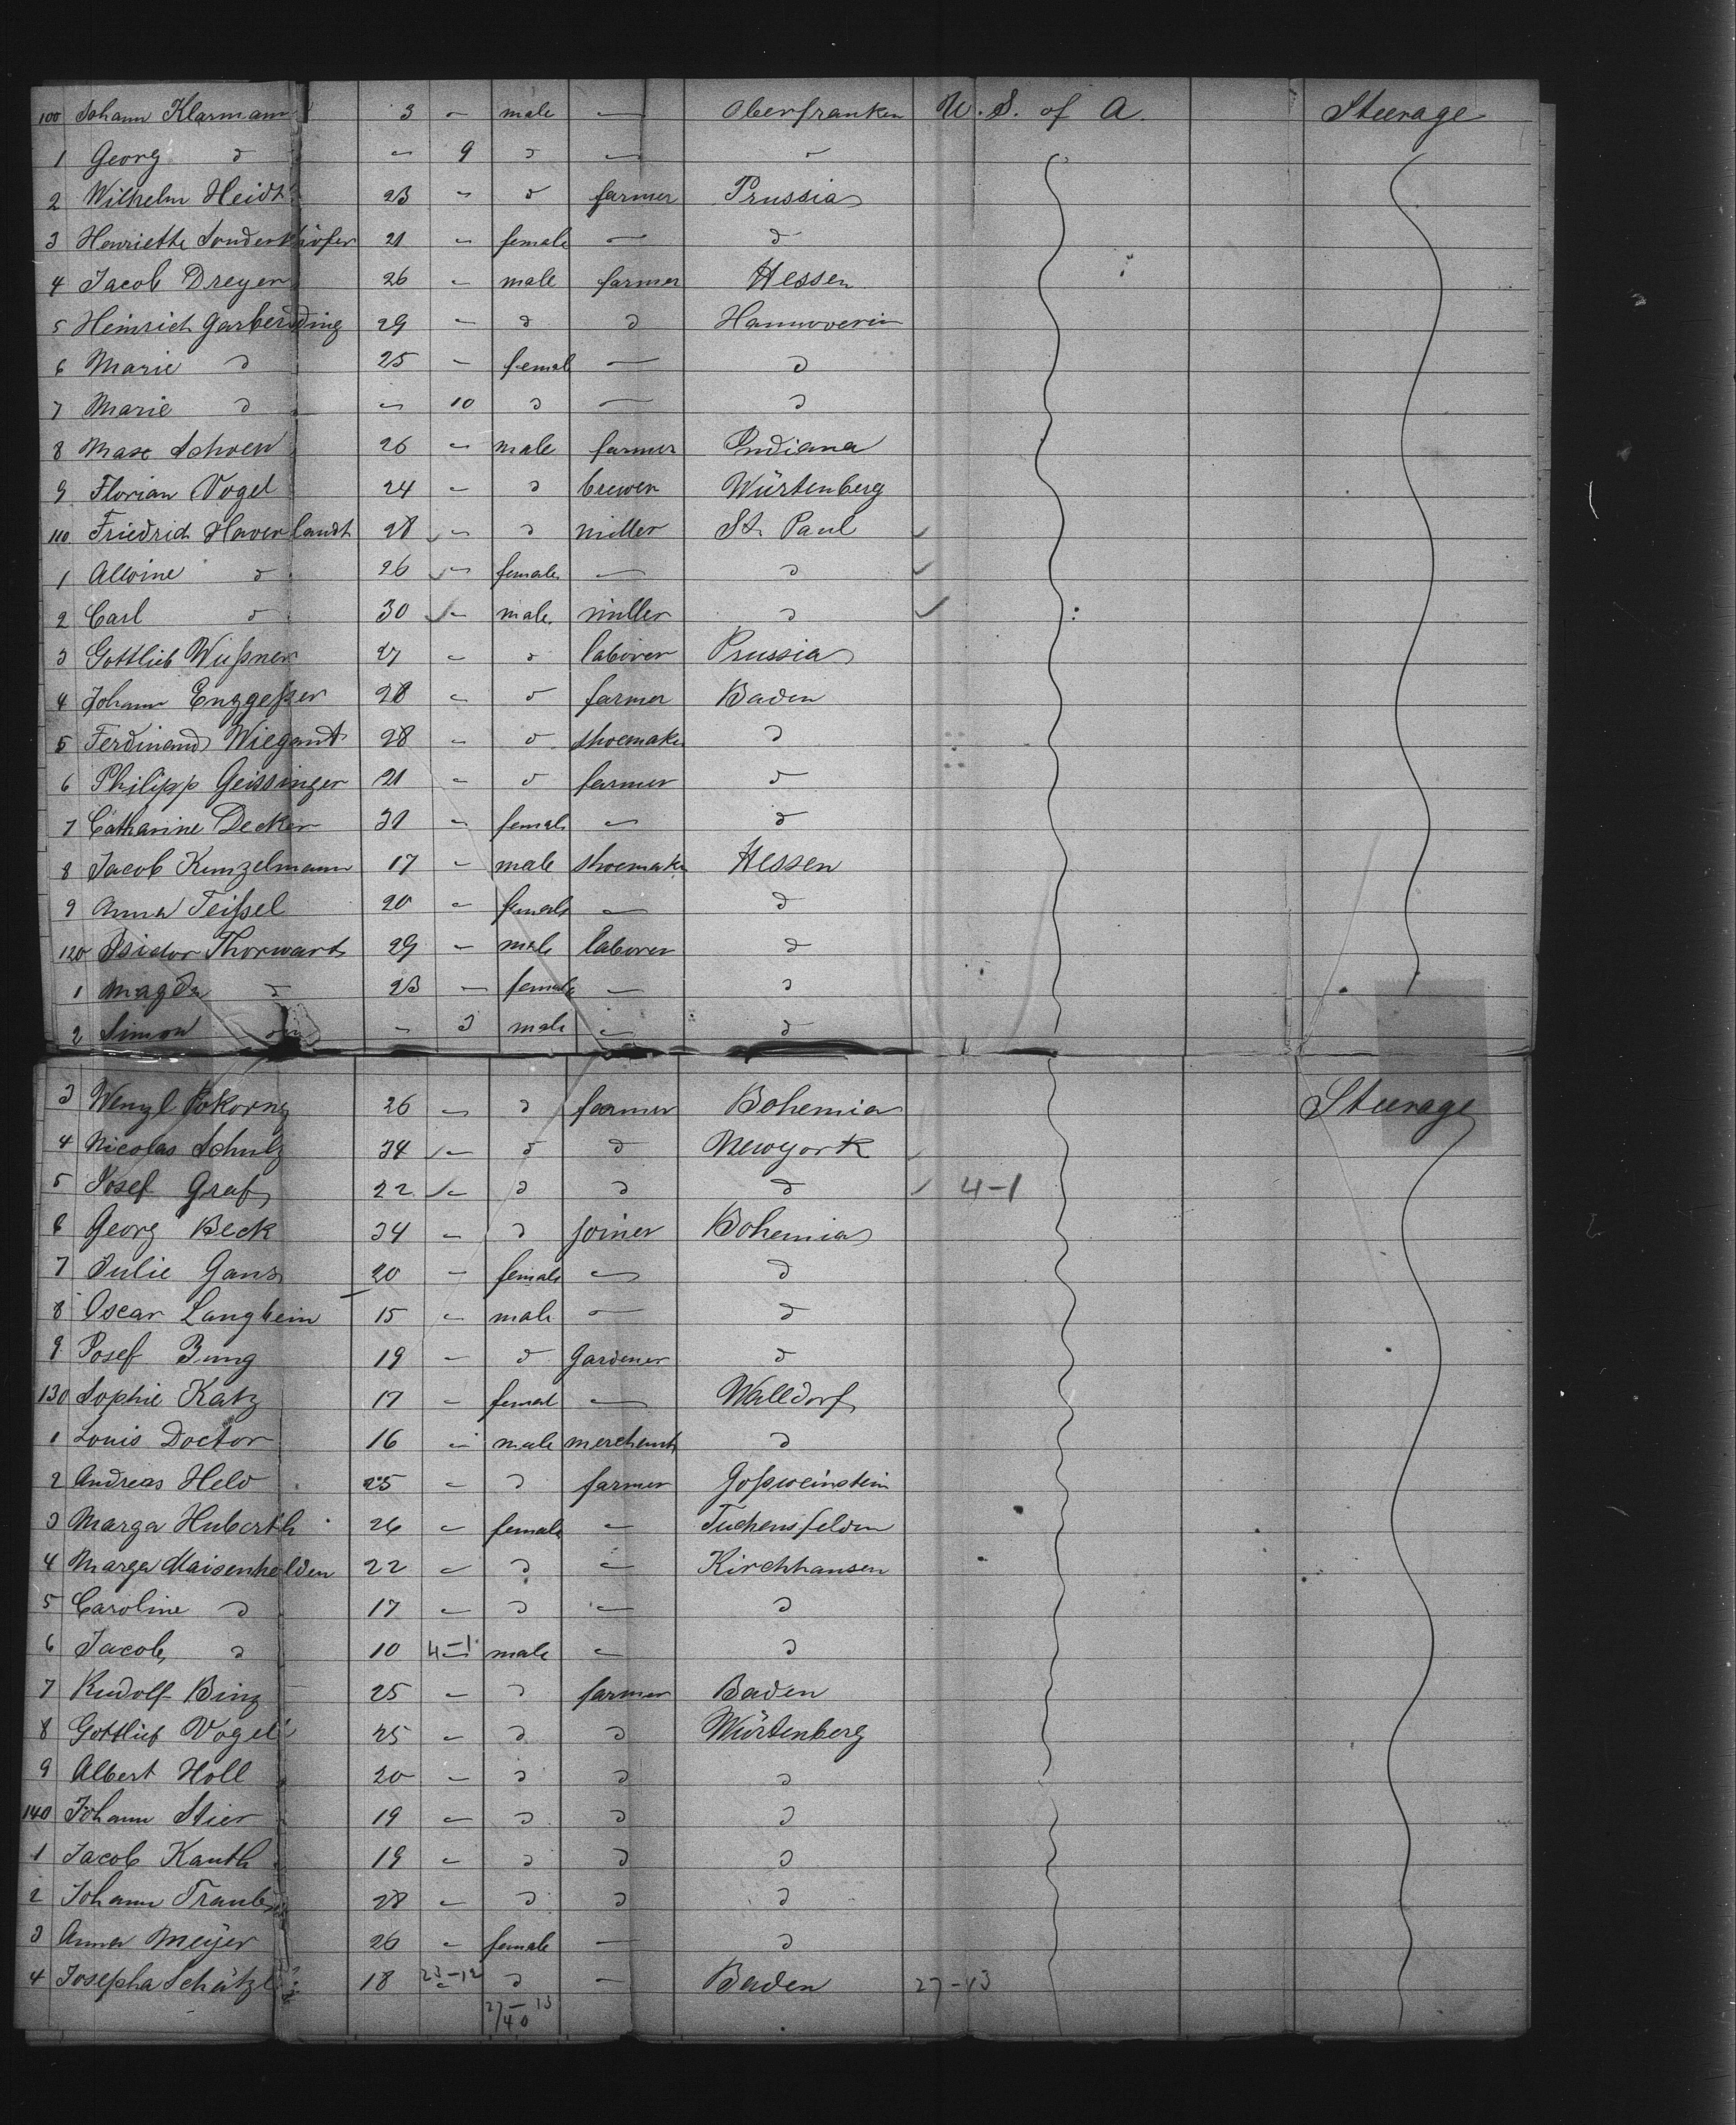 100 Johann Klarmann 3 – male — Oberfranken U. S. of A. Steerage
1 Georg do – 9 do — –
2 Wilhelm Heidt 23 – do farmer Prussia
3 Henriette Sondershöfer 21 – female — do
4 Jacob Dreyer 26 – male farmer Hessen
5 Heinrich Garberding 29 – do do Hannoverin
6 Marie do 25 – femal — do
7 Marie do – 10 do — do
8 Max Schoen 26 – male farmer Indiana
9 Florian Vogel 24 – do brewer Würtenberg
110 Friedrich Haverlandt 28 ✓ – do miller St. Paul ✓
1 Alwine do 26 ✓ – female — do ✓
2 Carl do 30 ✓ – male miller do ✓
3 Gottlieb Wißner 27 – do laborer Prussia
4 Johann Enggeßer 28 – do farmer Baden
5 Ferdinand Wiegand 28 – do shoemaker do
6 Philipp Geissinger 21 – do farmer do
7 Catharine Decker 31 – female — do
8 Jacob Kunzelmann 17 – male shoemaker Hessen
9 Anna Teißel 20 – female — do
120 Isidor Thorwarts 29 – male laborer do
1 Magda do 23 – female — do
2 Simon do – 3 male — do
3 Wenzl Pokorny 26 – do farmer Bohemia Steerage
4 Nicolas Schulz 34 ✓ – do do Newyork ✓
5 Josef Graf 22 ✓ – do do do ✓ 4-1
6 Georg Beck 34 – do joiner Bohemia
7 Julie Gans 20 – female — do
8 Oscar Langbein 15 – male — do
9 Josef Jung 19 – do Gardener do
130 Sophie Katz 17 – femal — Walldorf
1 Louis Doctor 16 – male merchant do
2 Andreas Held 25 – do farmer Goßweinstein
3 Marga Huberth 26 – female – Tuchensfelden
4 Marga Maisenhelden 22 – do – Kirchhausen
5 Caroline do 17 – do – do
6 Jacob do 10 4-1 male – do
7 Rudolf Binz 25 – do farmer Baden
8 Gottlieb Vogeli 25 – do do Würtenberg
9 Albert Holl 20 – do do do
140 Johann Stier 19 – do do do
1 Jacob Kauth 19 – do do do
2 Johann Traub 28 – do do do
3 Anna Meijer 26 – female — do
4 Josepha Schätzl 18 23-12 do — Baden 27-13
27-13
40